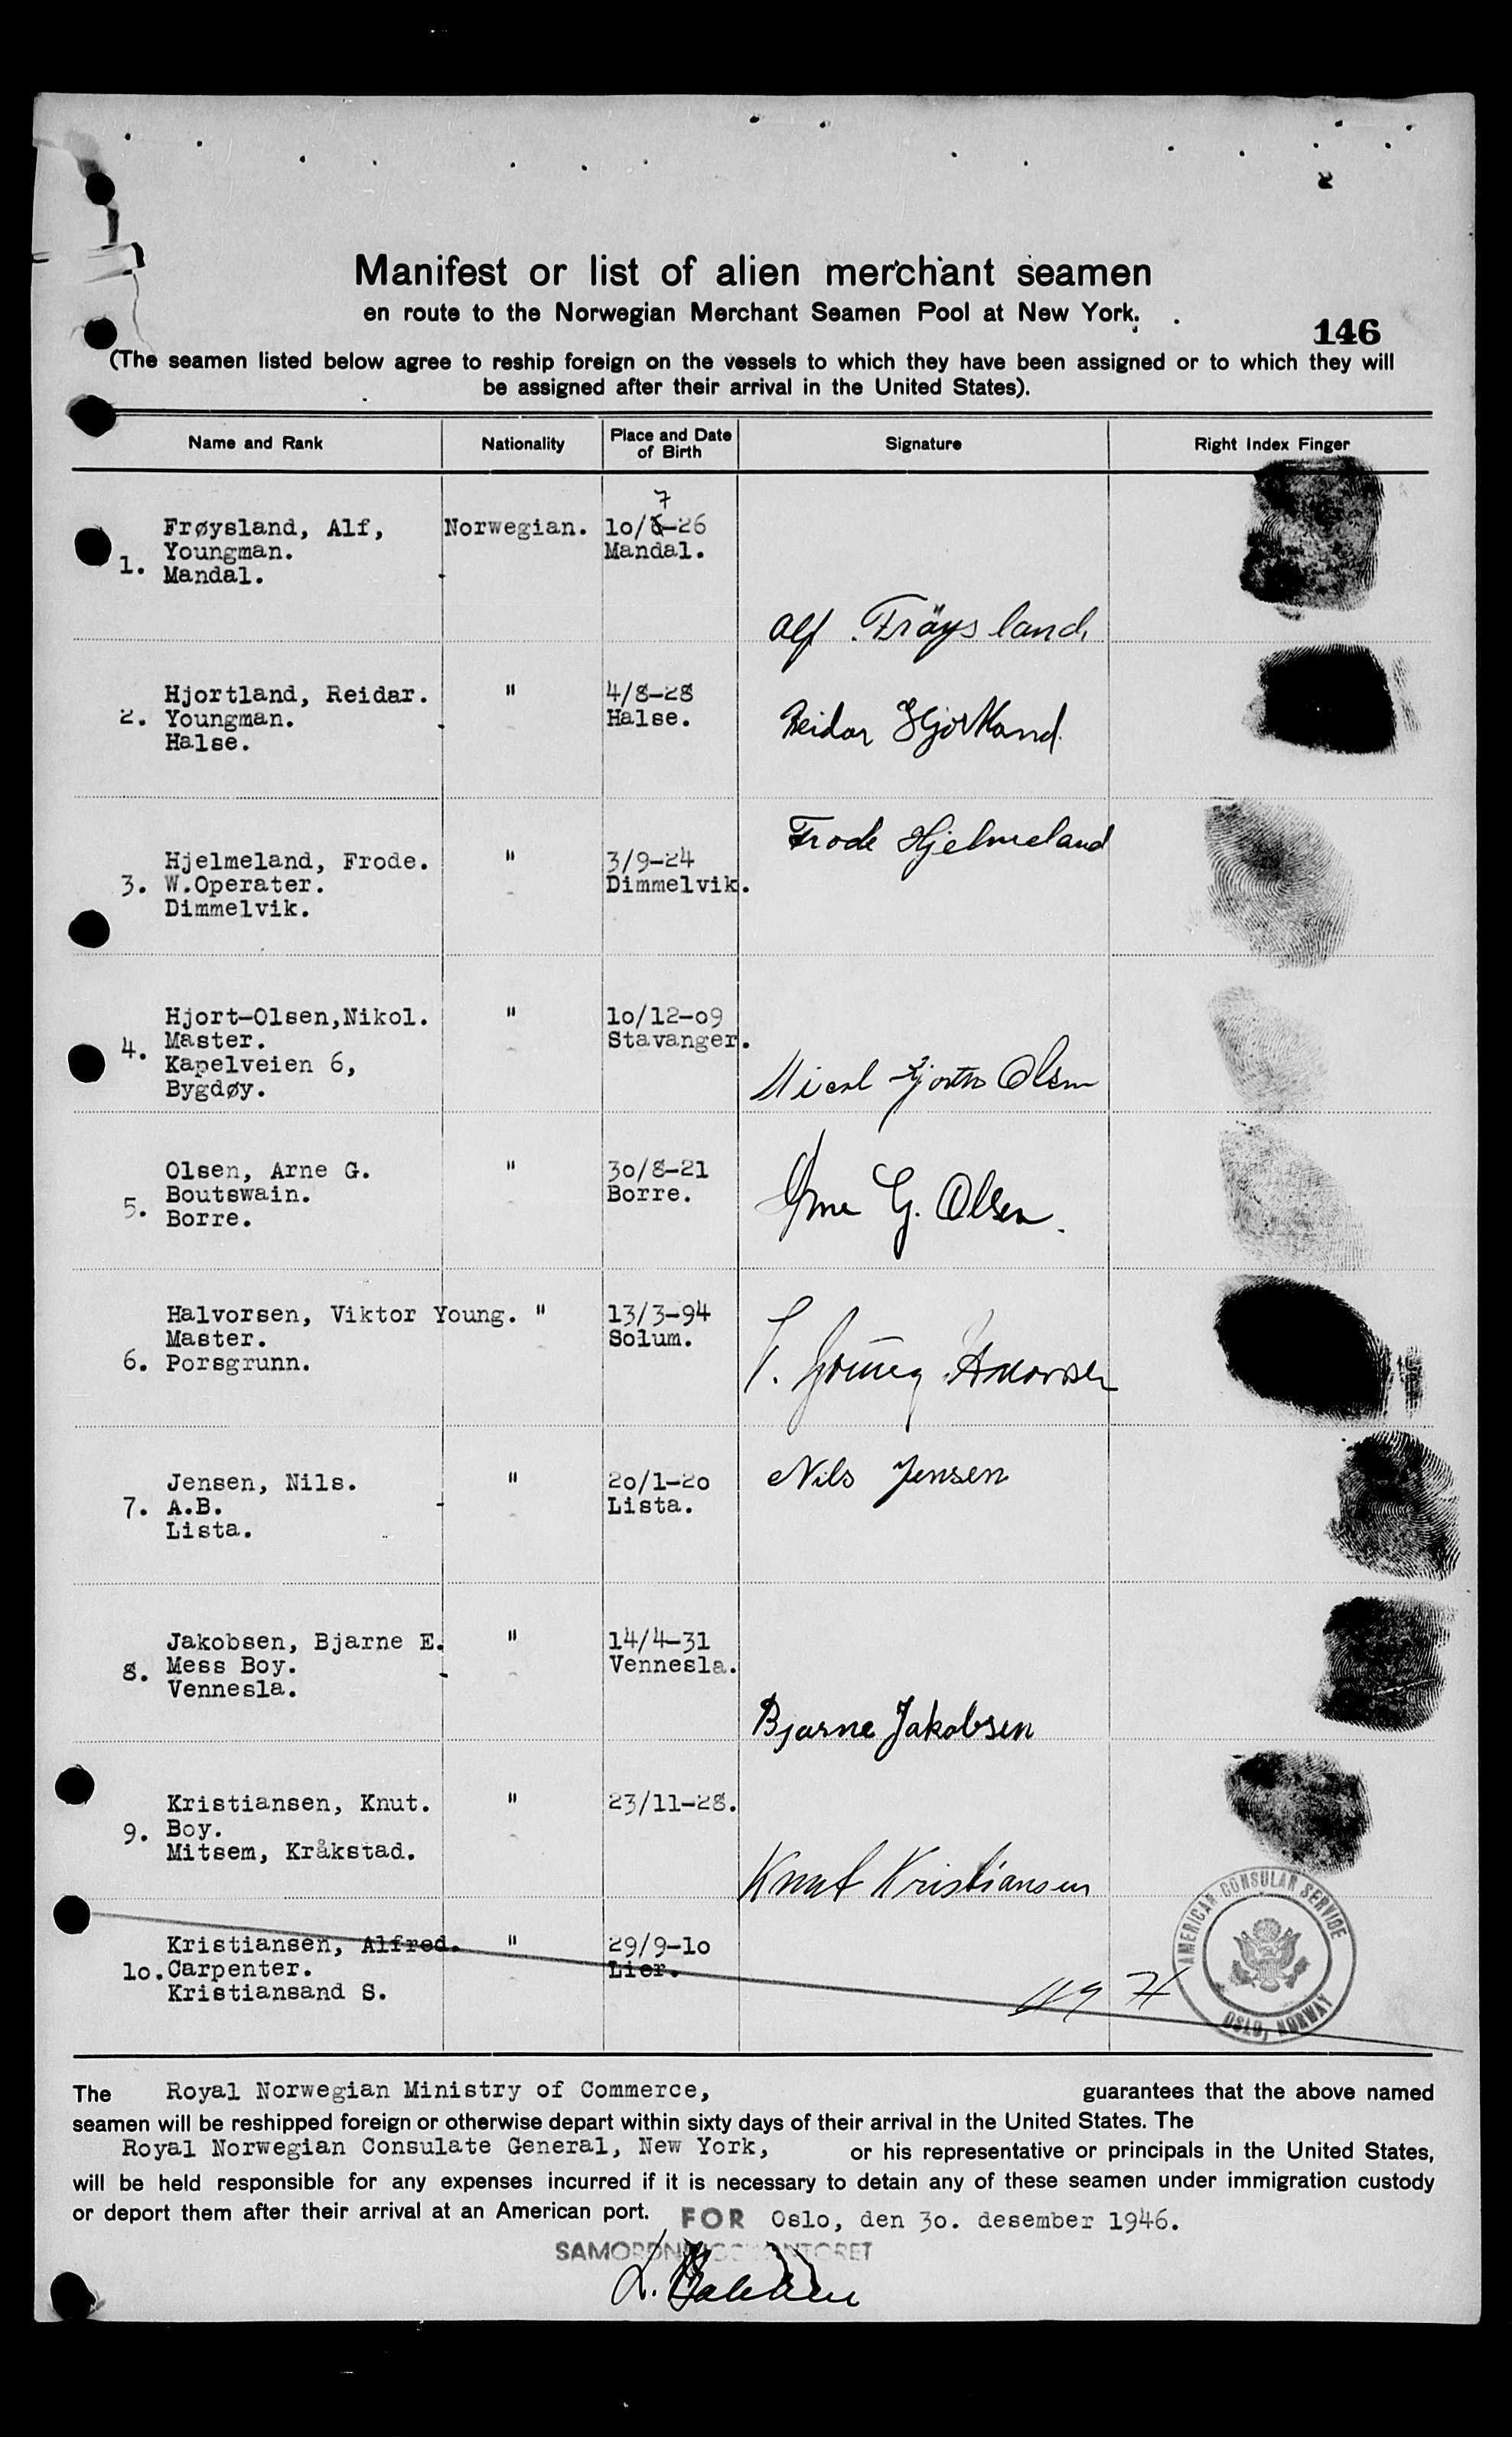 Manifest or list of alien merchant seamen
en route to the Norwegian Merchant Seamen Pool at New York.
146
(The seamen listed below agree to reship foreign on the vessels to which they have been assigned or to which they will
be assigned after their arrival in the United States).
Name and Rank Nationality Place and Date of Birth Signature Right Index Finger
7
Frøysland, Alf, Norwegian. 10/6-26
Youngman. Mandal.
1.
Mandal.
Alf Fröysland
Hjortland, Reidar. " 4/8-28
2. Youngman. Halse. Reidar Hjortland
Halse.
Frode Hjelmeland
Hjelmeland, Frode. " 3/9-24
3. W.Operater. Dimmelvik.
Dimmelvik.
Hjort-Olsen,Nikol. " 10/12-09
4. Master. Stavanger.
Kapelveien 6,
Bygdøy.
Olsen
Olsen, Arne G. " 30/8-21
Boutswain. Borre. Arne G. Olsen.
5. Borre.
Halvorsen, Viktor Young. " 13/3-94
Master. Solum.
6. Porsgrunn. V. Young Halvorsen
Jensen, Nils. " 20/1-20 Nils Jensen
7. A.B. Lista.
Lista.
Jakobsen, Bjarne E. " 14/4-31
8. Mess Boy. Vennesla.
Vennesla.
Bjarne Jakobsen
Kristiansen, Knut. " 23/11-28.
9. Boy.
Mitsem, Kråkstad.
Knut Kristiansen
Kristiansen, Alfred. " 29/9-10
10. Carpenter. Lier.
Kristiansand S.
AMERICAN CONSULAR SERVICE
OSLO, NORWAY
The Royal Norwegian Ministry of Commerce, guarantees that the above named
seamen will be reshipped foreign or otherwise depart within sixty days of their arrival in the United States. The
Royal Norwegian Consulate General, New York, or his representative or principals in the United States,
will be held responsible for any expenses incurred if it is necessary to detain any of these seamen under immigration custody
or deport them after their arrival at an American port. FOR Oslo, den 30. desember 1946.
SAMORDNINGSKONTORET